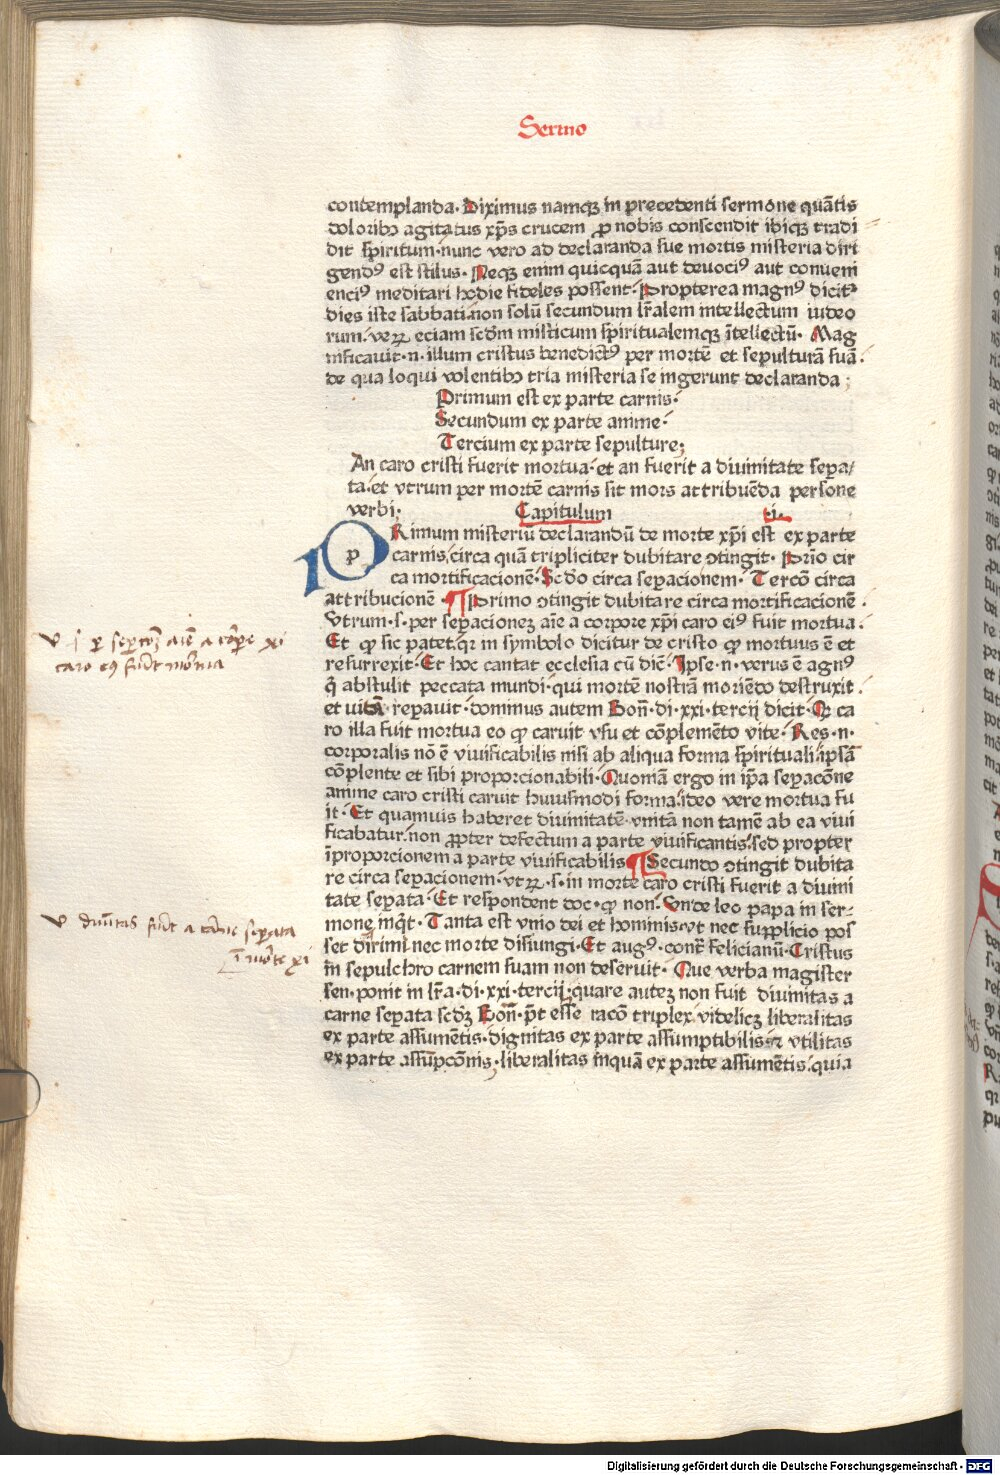 Sermo
contemplanda. Diximus namqꝫ in precedenti sermone quātis
doloribꝰ agitatus xp̄s crucem ꝓ nobis conscendit ibiqꝫ tradi
dit spiritum. nunc vero ad declaranda sue mortis misteria diri
gendꝰ est stilus. Neqꝫ enim quicquā aut deuociꝰ aut conueni
enciꝰ meditari hodie fideles possent. Propterea magnꝰ dicit᷑
dies iste sabbati. non solū secundum lr̄alem intellectum iudeo
rum. veꝝ eciam scd̄m misticum spiritualemqꝫ ītellectū. Mag
nificauit .n. illum cristus benedictꝰ per mortē et sepulturā suā.
de qua loqui volentibꝰ tria misteria se ingerunt declaranda;
Primum est ex parte carnis.
Secundum ex parte anime.
Tercium ex parte sepulture;
An caro cristi fuerit mortua. et an fuerit a diuinitate sepa/
ta. et vtrum per mortē carnis sit mors attribuēda persone
verbi; Capitulum .i.
p
PRimum misteriū declarandū de morte xp̄i est ex parte
carnis, circa quā tripliciter dubitare ↄtingit. Prīo cir
ca mortificacionē. Scd̄o circa sepacionem. Tercō circa
attribucionē. ¶ Primo ↄtingit dubitare circa mortificacionē.
Vtrum .s. per sepacionez aīe a corpore xp̄i caro eiꝰ fuit mortua.
Et ꝙ sic patet. qꝛ in symbolo dicitur de cristo ꝙ mortuus ē et
resurrexit. Et hoc cantat ecclesia cū dic̄. Ipse .n. verus ē agnꝰ
q̄ abstulit peccata mundi. qui mortē nostrā moriēdo destruxit.
et uitā repauit. dominus autem Bon̄. di. xxi. tercij dicit. Qꝛ ca
ro illa fuit mortua eo ꝙ caruit vsu et cōplemēto vite. Res .n.
corporalis nō ē viuificabilis nisi ab aliqua forma spirituali ipsā
cōplente et sibi proporcionabili. Quoniā ergo in ip̄a sepacōne
anime caro cristi caruit huiusmodi forma. ideo vere mortua fu
it. Et quamuis haberet diuinitatē vnitā non tamē ab ea viui
ficabatur. non ꝓpter defectum a parte viuificantis. sed propter
īproporcionem a parte viuificabilis ¶ Secundo ↄtingit dubita
re circa sepacionem. vtꝝ .s. in morte caro cristi fuerit a diuini
tate sepata. Et respondent doc. ꝙ non. Vnde leo papa in ser-
mone inq̄t. Tanta est vnio dei et hominis. vt nec supplicio pos
set dirimi. nec morte disiungi. Et augꝰ. cont̄ felicianū. Cristus
in sepulchro carnem suam non deseruit. Que verba magister
sen. ponit in lr̄a. di. xxi. tercij. quare autez non fuit diuinitas a
carne sepata scd̄ꝫ Bon̄. p̄t esse racō triplex videlicꝫ liberalitas
ex parte assumentis. dignitas ex parte assumptibilis. ⁊ vtilitas
ex parte assūpcōnis. liberalitas inquā ex parte assumētis. quia
caro eꝰ fuerit mortua
v diuītas fuerit a carne sepata
ī morte xi
Digitalisierung gefördert durch die Deutsche Forschungsgemeinschaft - DFG